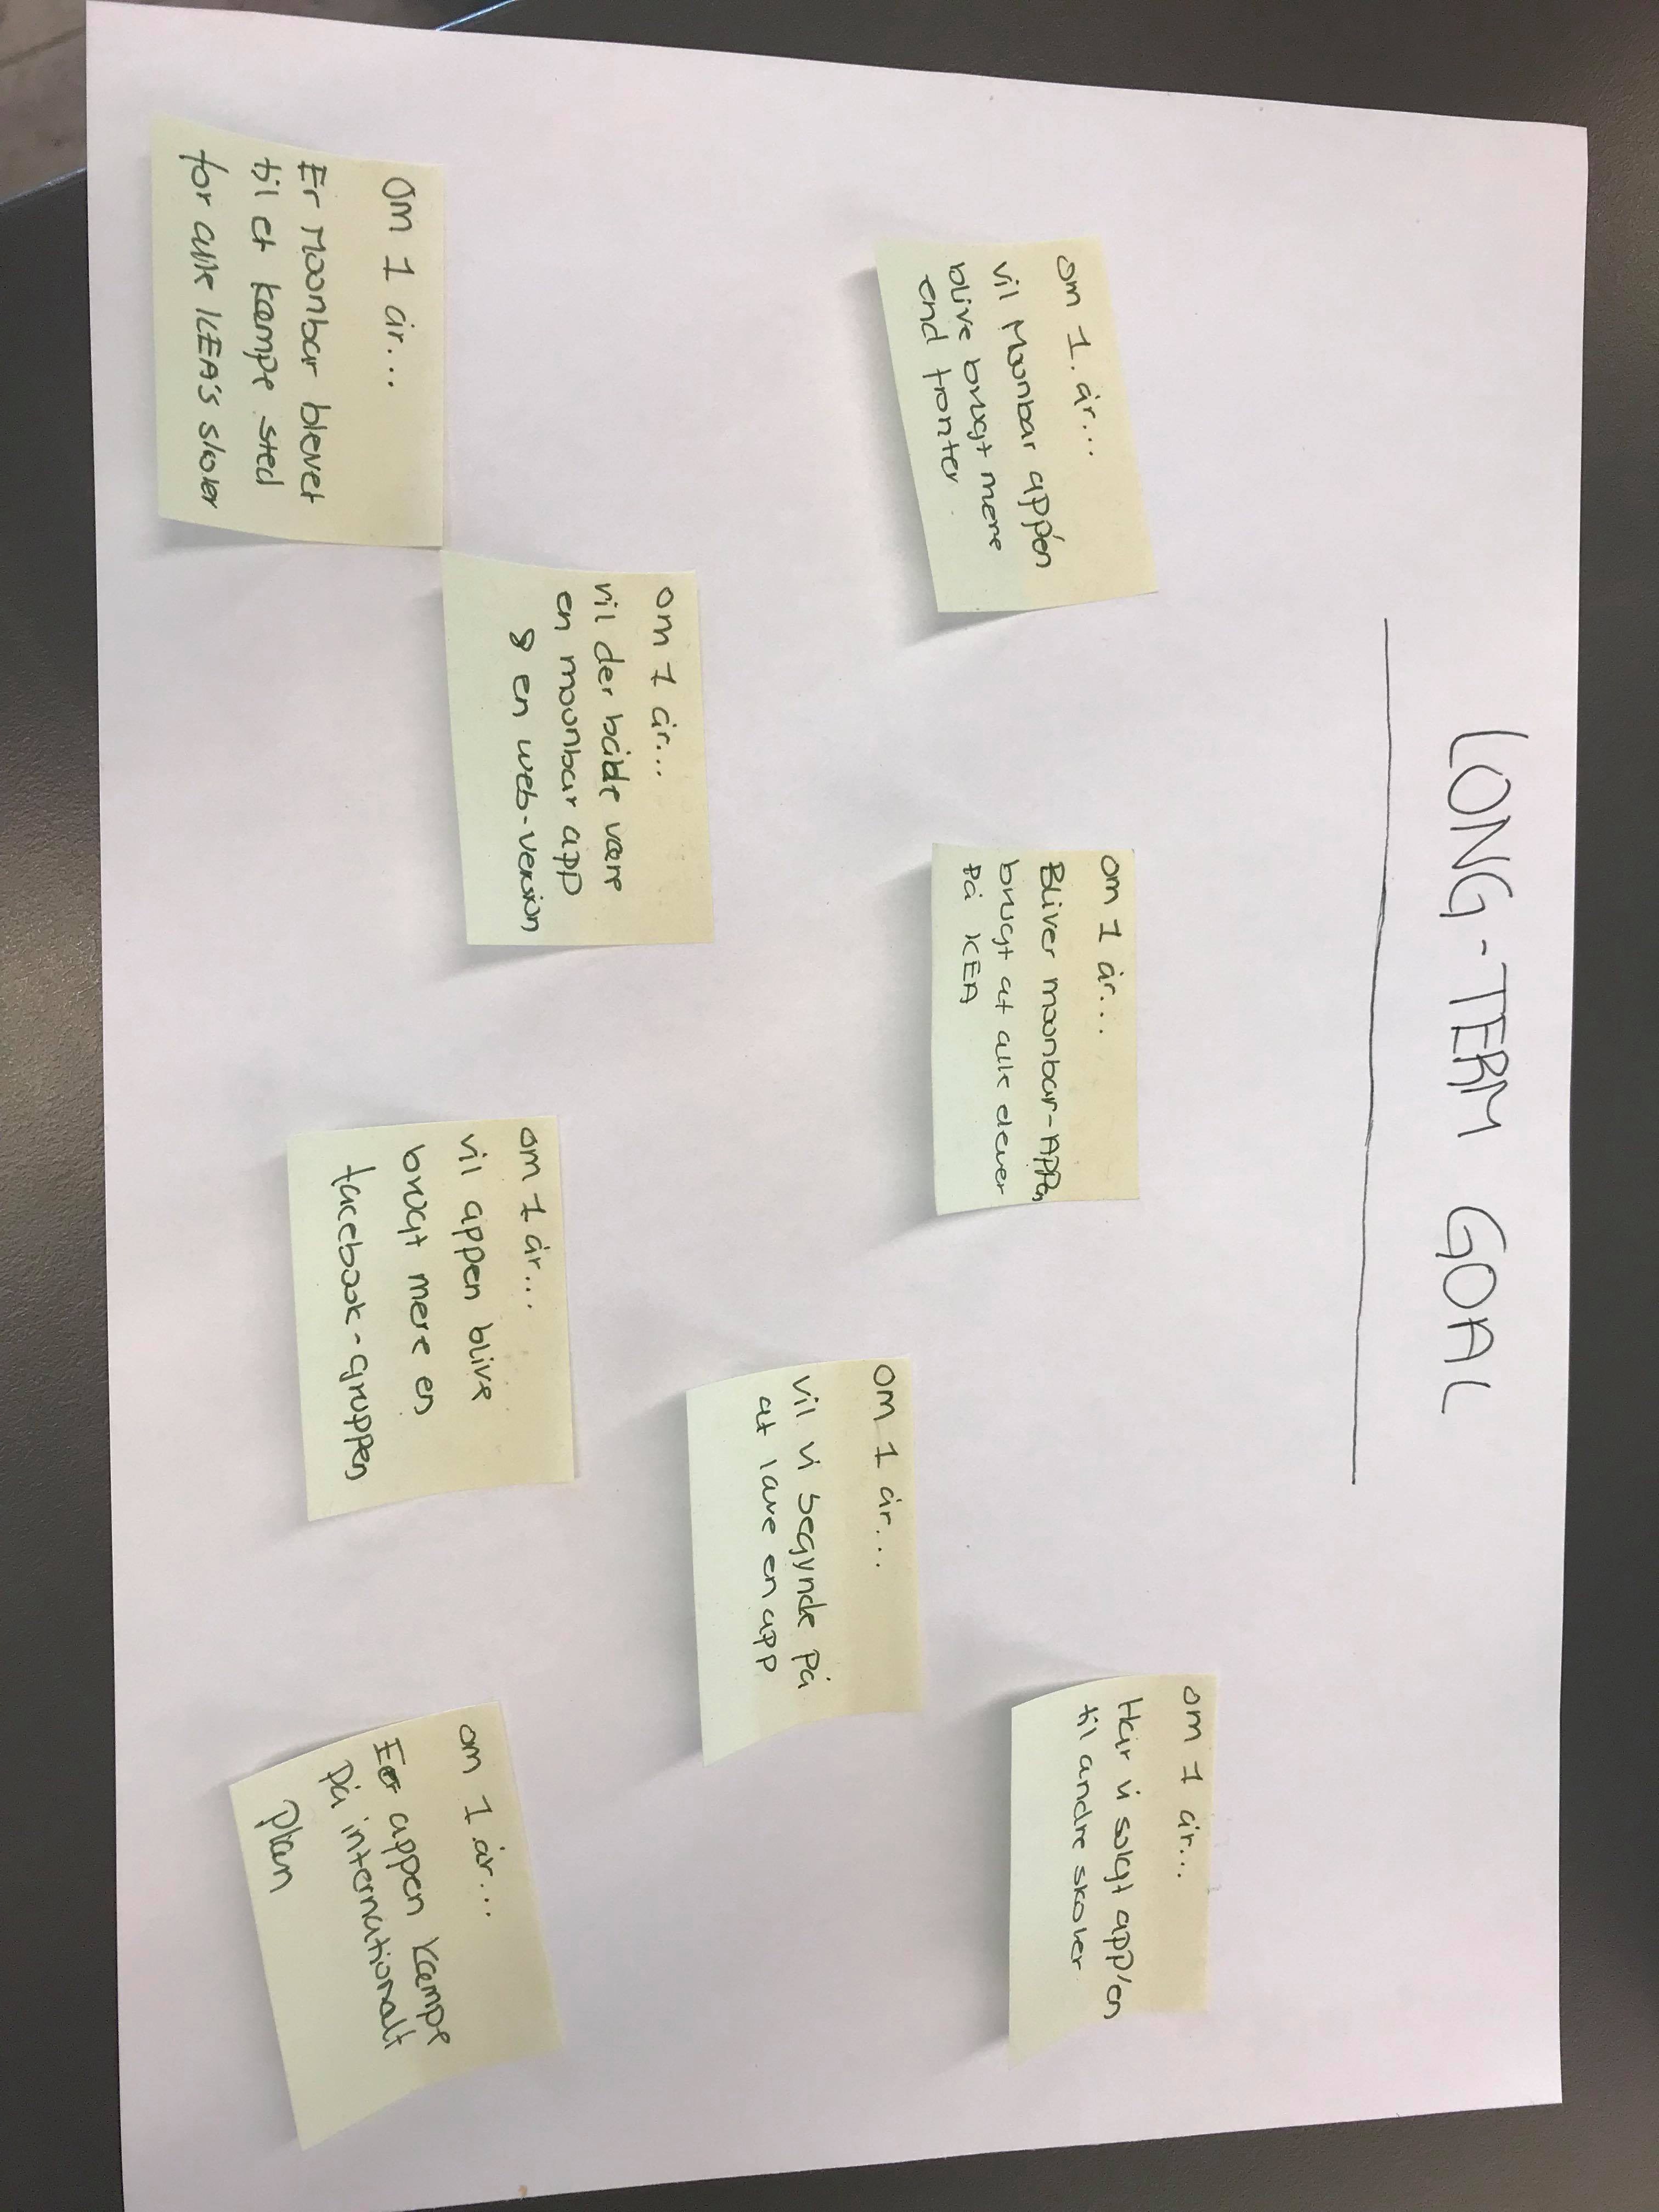 LONG-TERM GOAL
om 1. år...
vil Moonbar app'en
blive brugt mere
end fronter
om 1 år...
Bliver moonbar-APPen
brugt af alle elever
på KEA
om 1 år...
Har vi solgt app'en
til andre skoler
om 1 år...
vil vi begynde på
at lave en app
om 1 år...
vil der både være
en moonbar app
& en web-version
om 1 år...
vil appen blive
brugt mere en
facebook-gruppen
om 1 år...
Er appen kæmpe
på internationalt
plan
Om 1 år...
Er Moonbar blevet
til et kæmpe sted
for alle KEA'S skoler